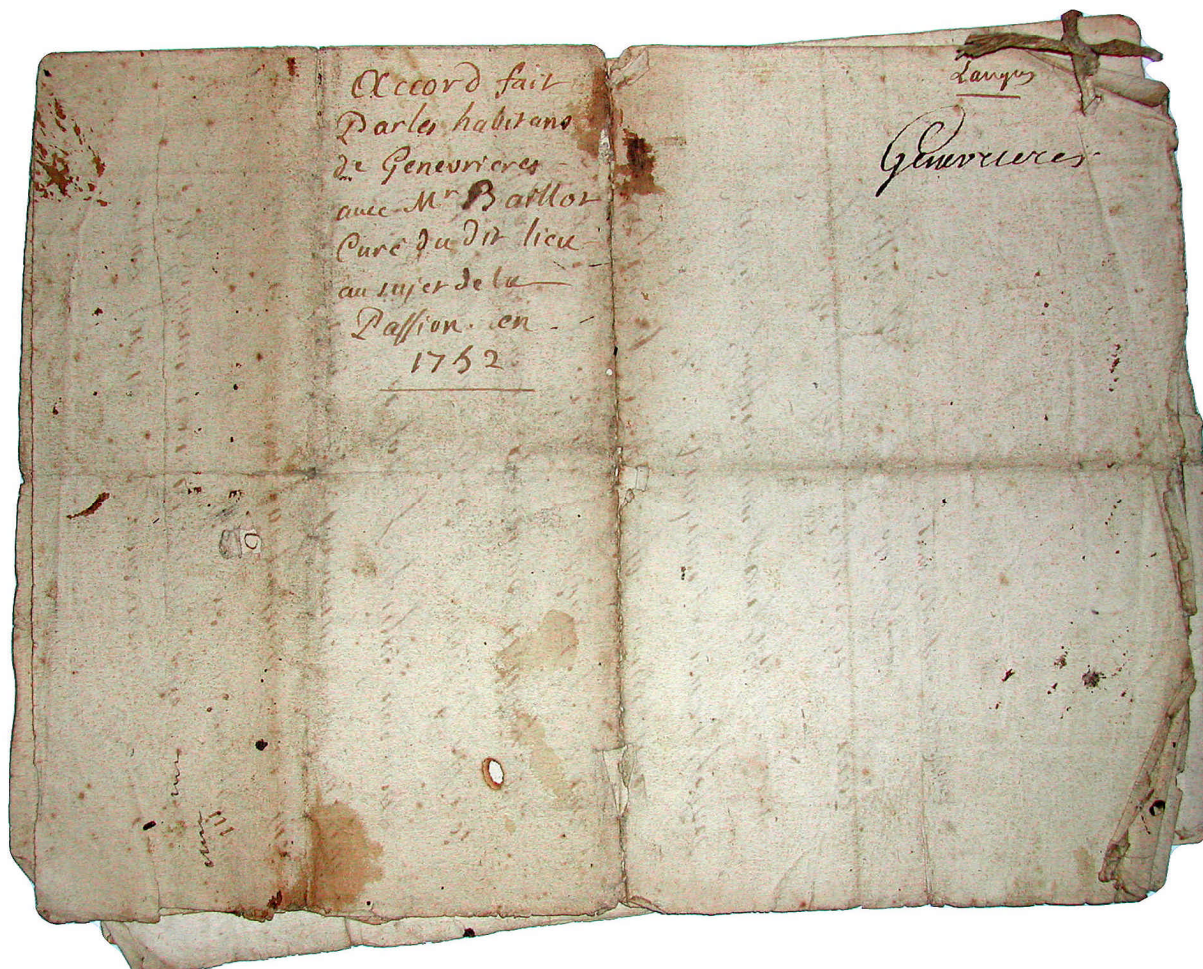 Accord fait
Par les habitans
de Genevrieres
avec Mr Baillot
Curé du dit lieu
au sujet de la
Passion en
1752
Langres
Genevrieres